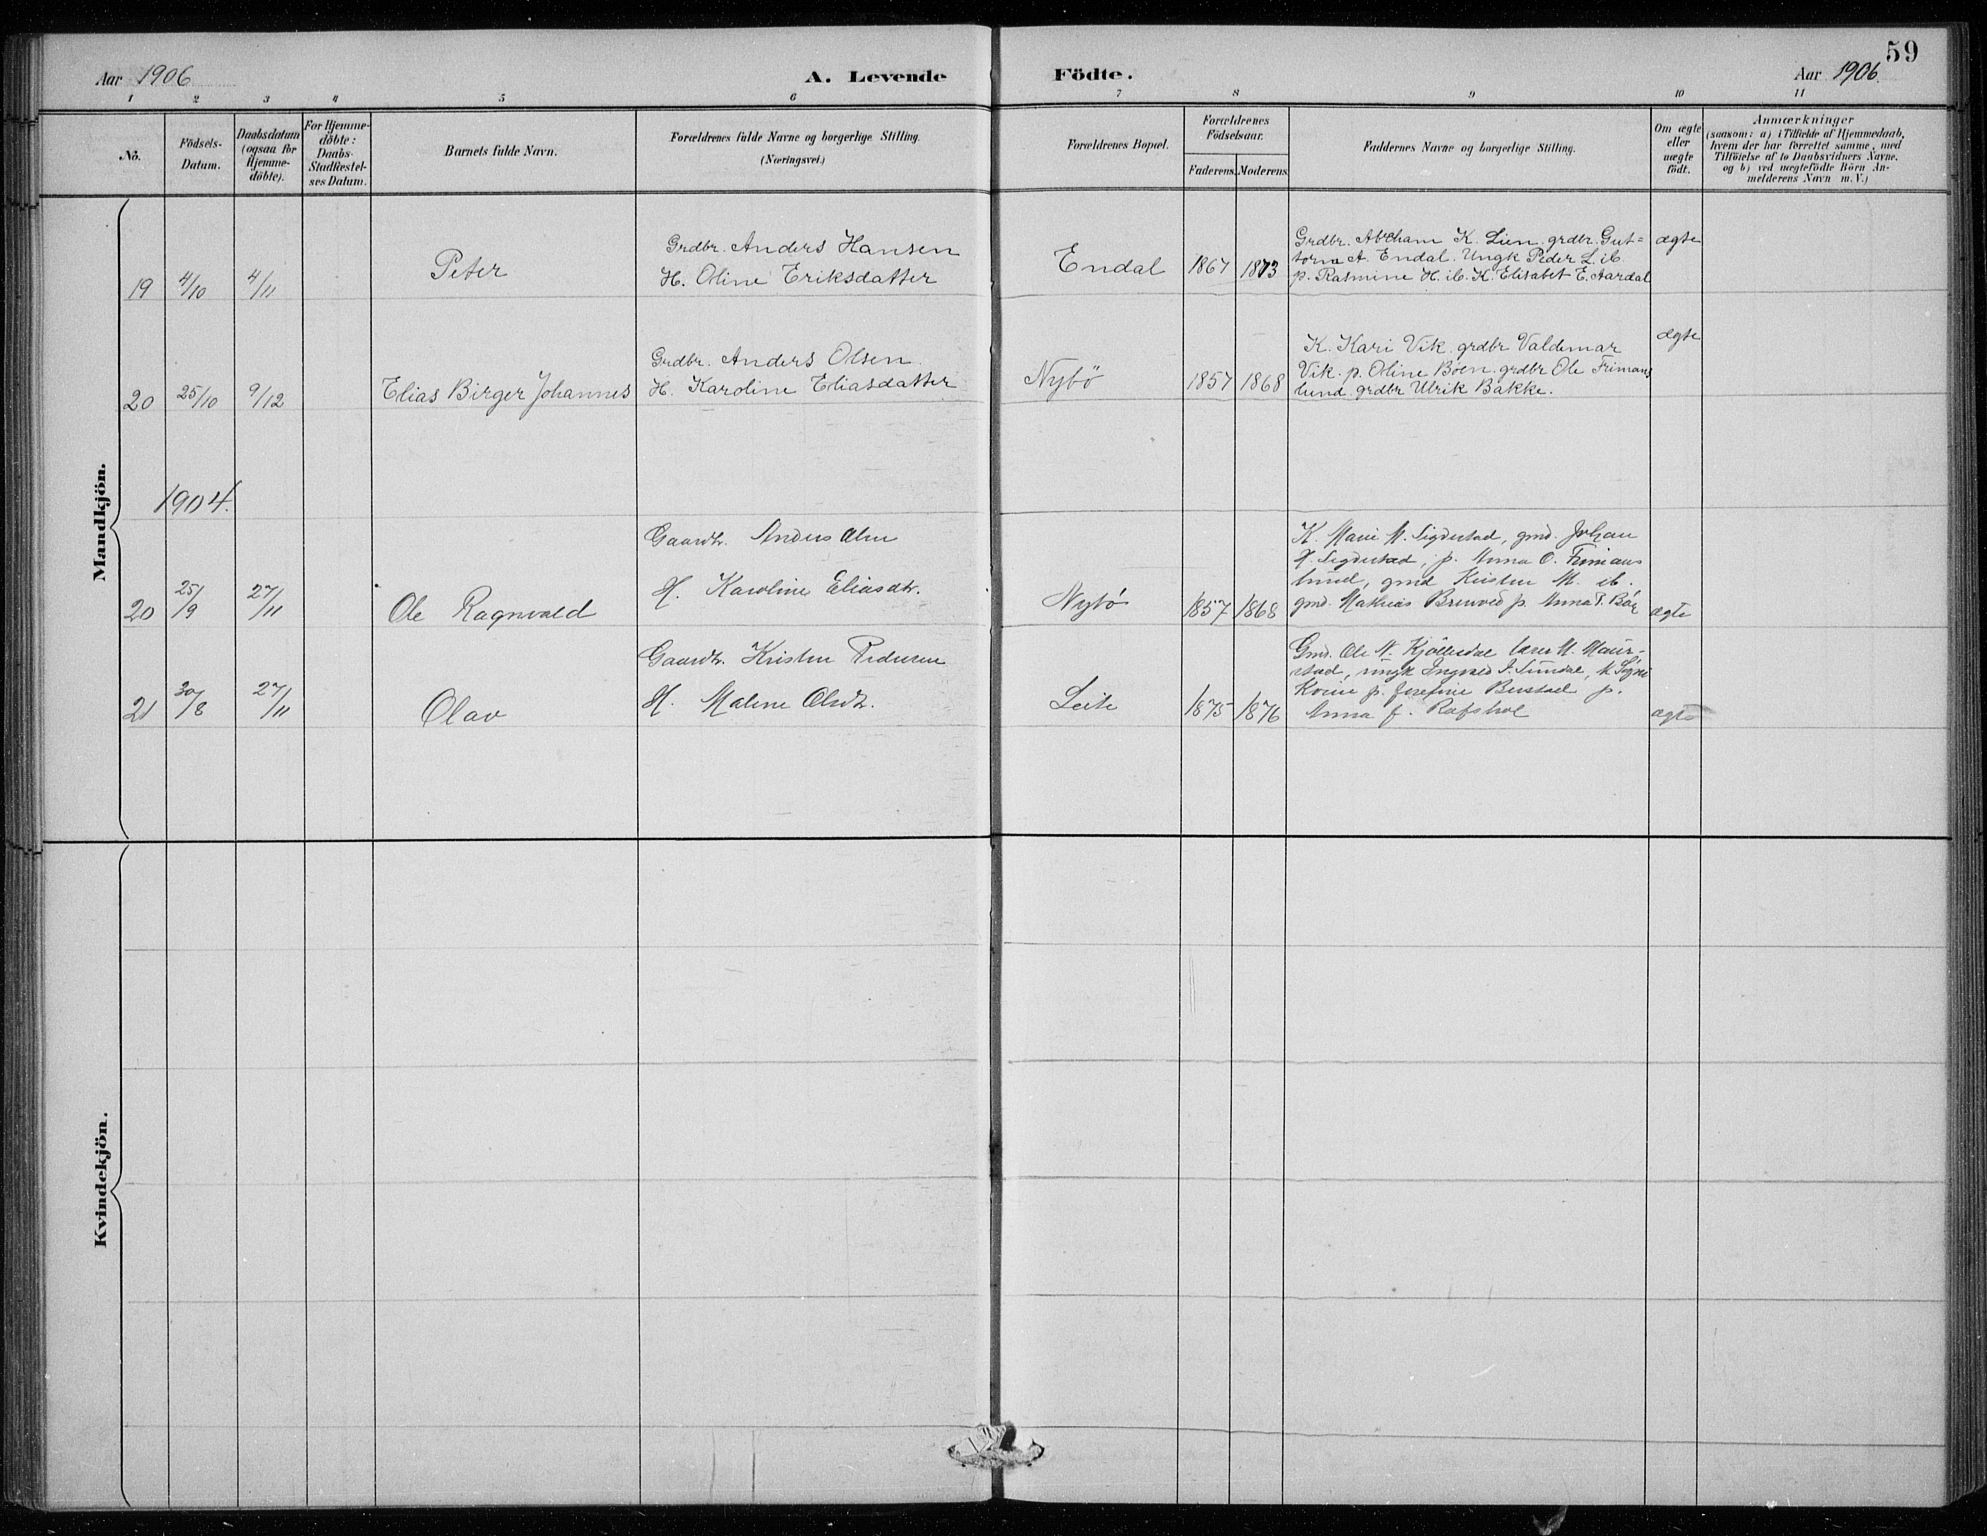 59
Aar 1906
A. Levende Födte.
Aar 1906.
1 2 3 4 5 6 7 8 9 10 11
No.
Födsels-
Datum.
Daabsdatum
(ogsaa for
Hjemme-
döbte).
For Hjemme-
döbte:
Daabs-
Stadfæstel-
ses Datum.
Barnets fulde Navn.
Forældrenes fulde Navne og borgerlige Stilling.
(Næringsvei.)
Forældrenes Bopæl.
Forældrenes
Födselsaar.
Faderens. Moderens.
Faddernes Navne og borgerlige Stilling.
Om ægte
eller
uægte
födt.
Anmærkninger
(saasom: a) i Tilfælde af Hjemmedaab,
hvem der har forrettet samme, med
Tilföielse af to Daabsvidners Navne.
og b) ved uægtefödte Börn An-
melderens Navn m. V.)
Mandkjön.
19 4/10 4/11
Peter
Grdbr. Anders Hansen
H. Oline Eriksdatter
Endal
1867 1873
Grdbr. Abraham K. Lien. grdbr. Gut=
torm A. Endal. Ungk Peder L. ib.
p. Rasmine H. ib. K. Elisabet E. Aardal
ægte
20 25/10 9/12
Elias Birger Johannes
Grdbr. Anders Olsen
H. Karoline Eliasdatter
Nybö
1857 1868
K. Kari Vik. grdbr Valdemar
Vik. p. Oline Böen. grdbr Ole Frimans
lund. grdbr Ulrik Bakke.
ægte
1904.
20 25/9 27/11
Ole Ragnvald
Gaardbr. Anders Olsen
H. Karoline Eliasdtr.
Nybö
1857 1868
K. Marie M. Sigdestad, gmd. Johan
H. Sigdestad, p. Anna O. Frimans
lund, gmd Kristen M. ib.
gmd. Mathias p. Anna T. Bör
ægte
21 30/8 27/11
Olav
Gaardbr. Kristen Pedersen
H. Malene Olsdtr.
Leite
1875 1876
Gmd. Ole N. Kjöllesdal lærer M. Maur-
stad, ungk Ingvald J. Sundal, k Signe
p. Josefine p.
Anna J.
ægte
Kvindekjön.